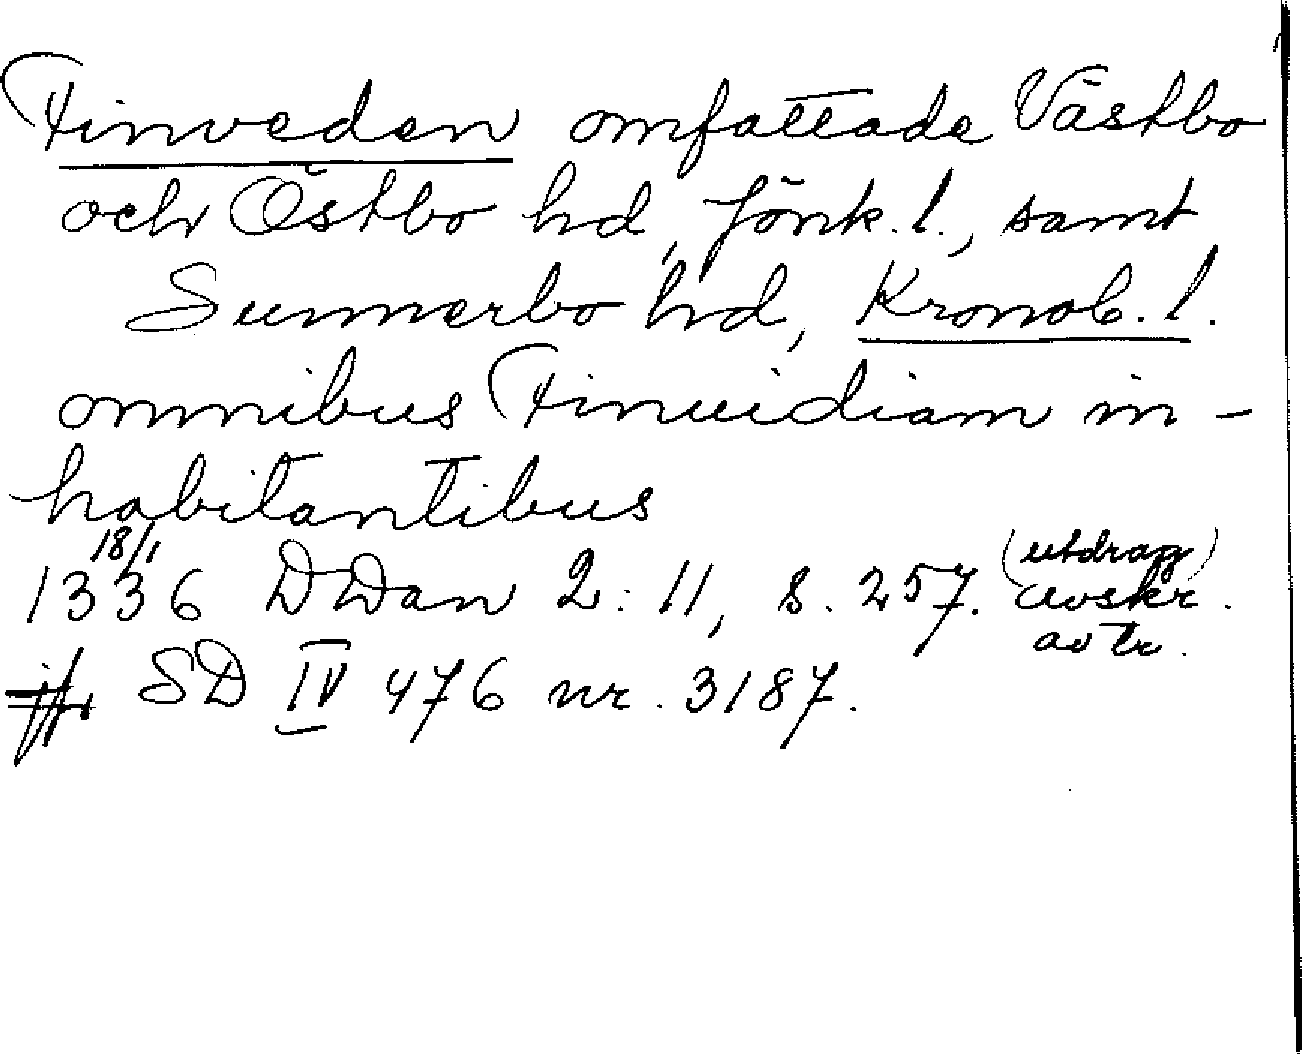 Finveden omfattade Västbo
och Östbo hd, Jönk. l., samt
Sunnerbo hd, Kronob. l.
omnibus Finuidiam in-
habitantibus
18/1
1336 DDan 2: 11, s. 257. (utdrag)
avskr.
av tr.
jfr SD IV 476 nr. 3187.